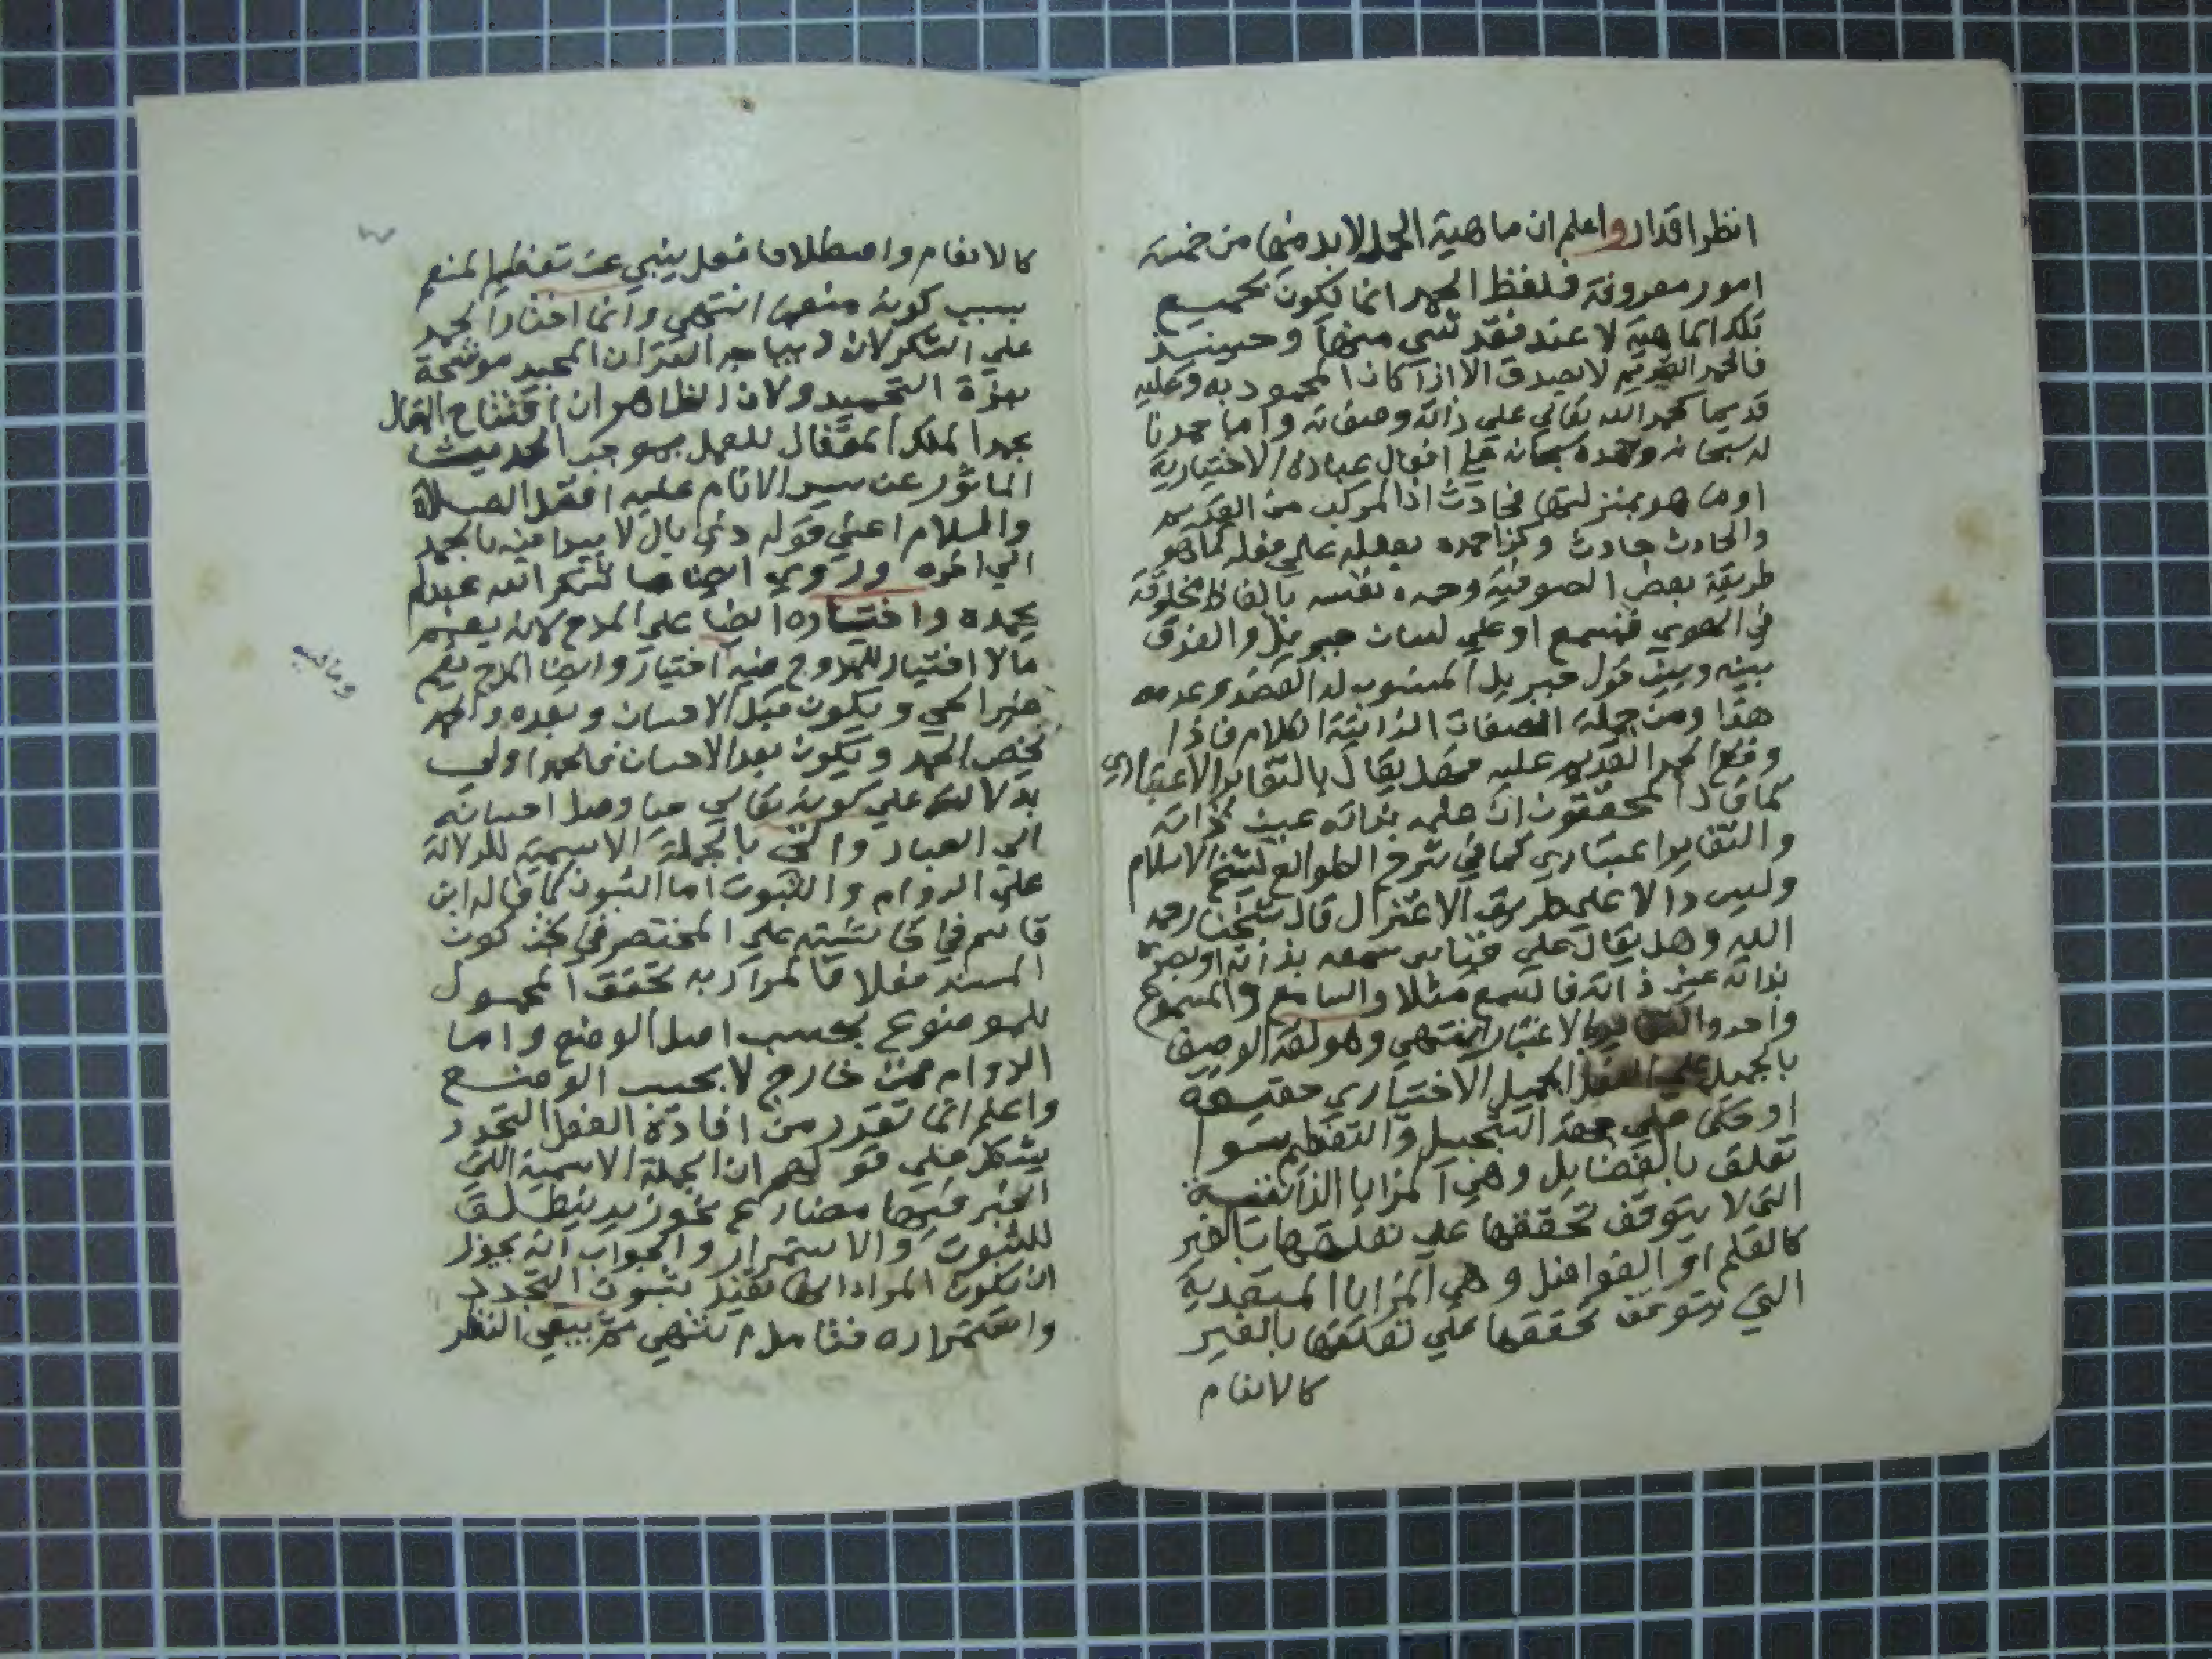 انظر اقدار واعلم ان ماهية الحمد لابد منها من خمسة
امور معروفة فلفظ الحمد انما يكون بجميع
تلك الماهية لا عند فقد شي منها وحينيذ
فالحمد القديم لا يصدق الا اذا كان المحمود به وعليه
قديما كحمد الله تعالي علي ذاته وصفاته واما حمدنا
له سبحانه وحمده سبحانه علي افعال عباده الاختيارية
او ما هو بمنزلتها فحادث اذ المركب من القديم
والحادث حادث وكذا حمده بفعله علي فعله كما هو
طريقة بعض الصوفية وحمده نفسه بالفاظ مخلوقة
في الهوي فتسمع او علي لسان جبريل والفرق
بينه وبين قول جبريل المنسوب له القصد وعدمه
هذا ومن جملة الصفات الذاتية الكلام فاذا
وقع الحمد القديم عليه فهل يقال بالتغاير الاعتباري
كما قال المحققون ان علمه بذاته عين ذاته
والتغاير اعتباري كما في شرح الطوالع لشيخ الاسلام
وليس ذا الا علي طريق الاعتزال قال شيخنا رحمه
الله وهل يقال علي قياس سمعه بذاته او بصره
بذاته عين ذاته فالسمع مثلا والسامع والمسموع
واحد والتغاير بالاعتبار انتهي وهو لغة الوصف
بالجميل علي الفعل الجميل الاختياري حقيقة
او حكما علي جهة التبجيل والتعظيم سوا
تعلق بالفضايل وهي المزايا الذاتية
التي لا يتوقف تحققها علي تعلقها بالغير
كالعلم او الفواضل وهي المزايا المتعدية
التي يتوقف تحققها علي تعلقها بالغير
كالانعام
كالانعام واصطلاحا فعل ينبي عن تعظيم المنعم
بسبب كونه منعما انتهي وانما اختار الحمد
علي الشكر لان ديباجة القران المجيد موشحة
بهذة التحميد ولان الظاهر ان افتتاح المقال
بحمد الملك المتعال للعمل بموجب الحديث
الماثور عن سيد الانام عليه افضل الصلاة
والسلام اعني قوله ذي بال لا يبدا فيه بالحمد
الي اخره وروي ايضا ما شكر الله عبد لم
يحمده واختاره ايضا علي المدح لانه يعم
مالا اختيار للممدوح فيه اختيار وايضا المدح يعم
غير الحي ويكون قبل الاحسان وبعده والحمد
يخص الحمد ويكون بعد الاحسان فالحمد اولي
بدلالته علي كونه تعالي حيا وصل احسانه
الي العباد واتي بالجملة الاسمية للدلالة
علي الدوام والثبوت اما الثبوت كما قاله ابن
قاسم في حاشيته علي المختصر في بحث كون
المسند فعلا فالمراد به تحقق المحمول
للموضوع بحسب اصل الوضع واما
الدوام فمن خارج لا بحسب الوضع
واعلم انما تقرر من افادة الفعل التجدد
يشكل علي قولهم ان الجملة الاسمية التي
الخبر فيها مضارع نحو زيد ينطلق
للثبوت والاستمرار والجواب انه يجوز
ان يكون المراد انها تفيد ثبوت التجدد
واستمراره فتامل انتهي ثم يبقي النظر
وما فيه